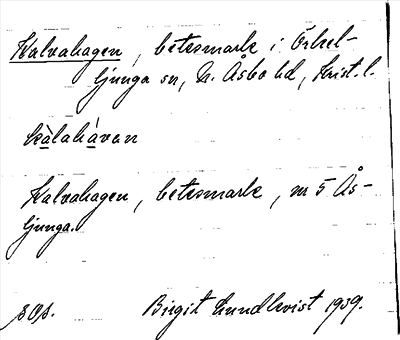 Kalvahagen, betesmark i Örkel-
ljunga sn, N. Åsbo hd, Krist. l.
kàlahávan
Kalvahagen, betesmark, nr 5 Ås-
ljunga.
Birgit Lundkvist 1939.